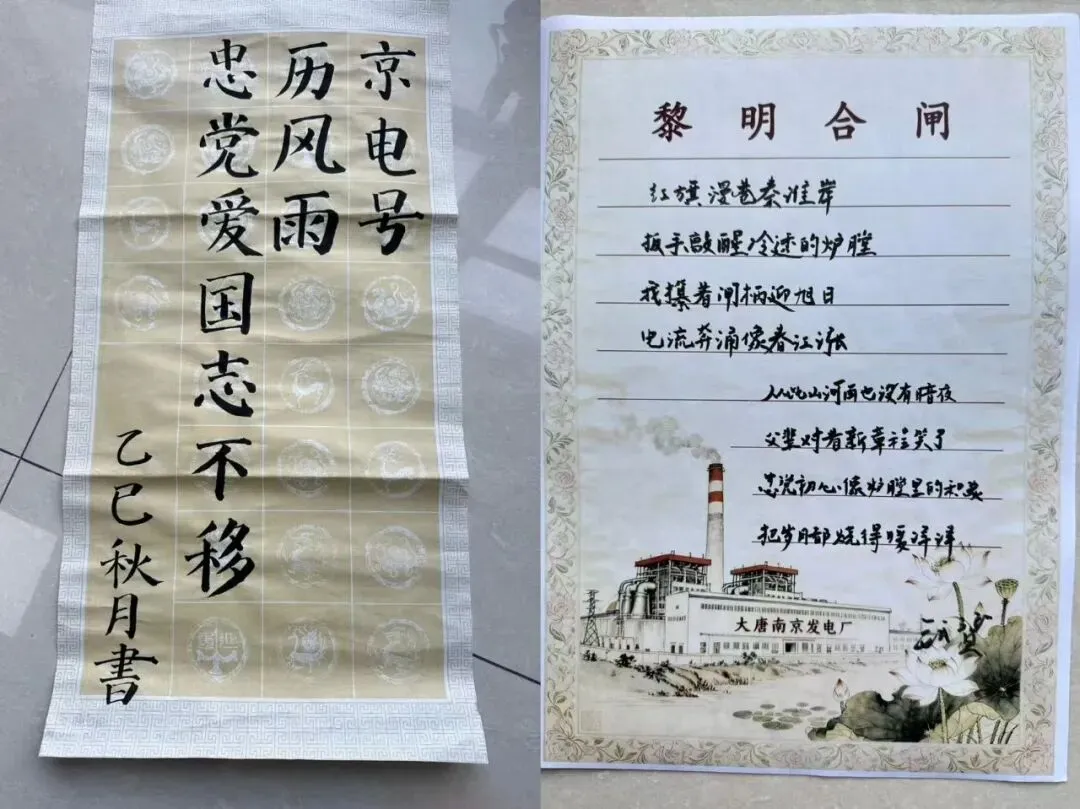 京电号
历风雨
忠党爱国志不移
乙巳秋月書
黎明合闸
红旗漫卷秦淮岸
扳手敲醒冷透的炉膛
我攥着闸柄迎旭日
电流奔涌像春江涨
从此山河再也没有暗夜
父辈对着新章程笑了
总说初心像炉膛里的和
把岁月都烧得暖洋洋
大唐南京发电厂